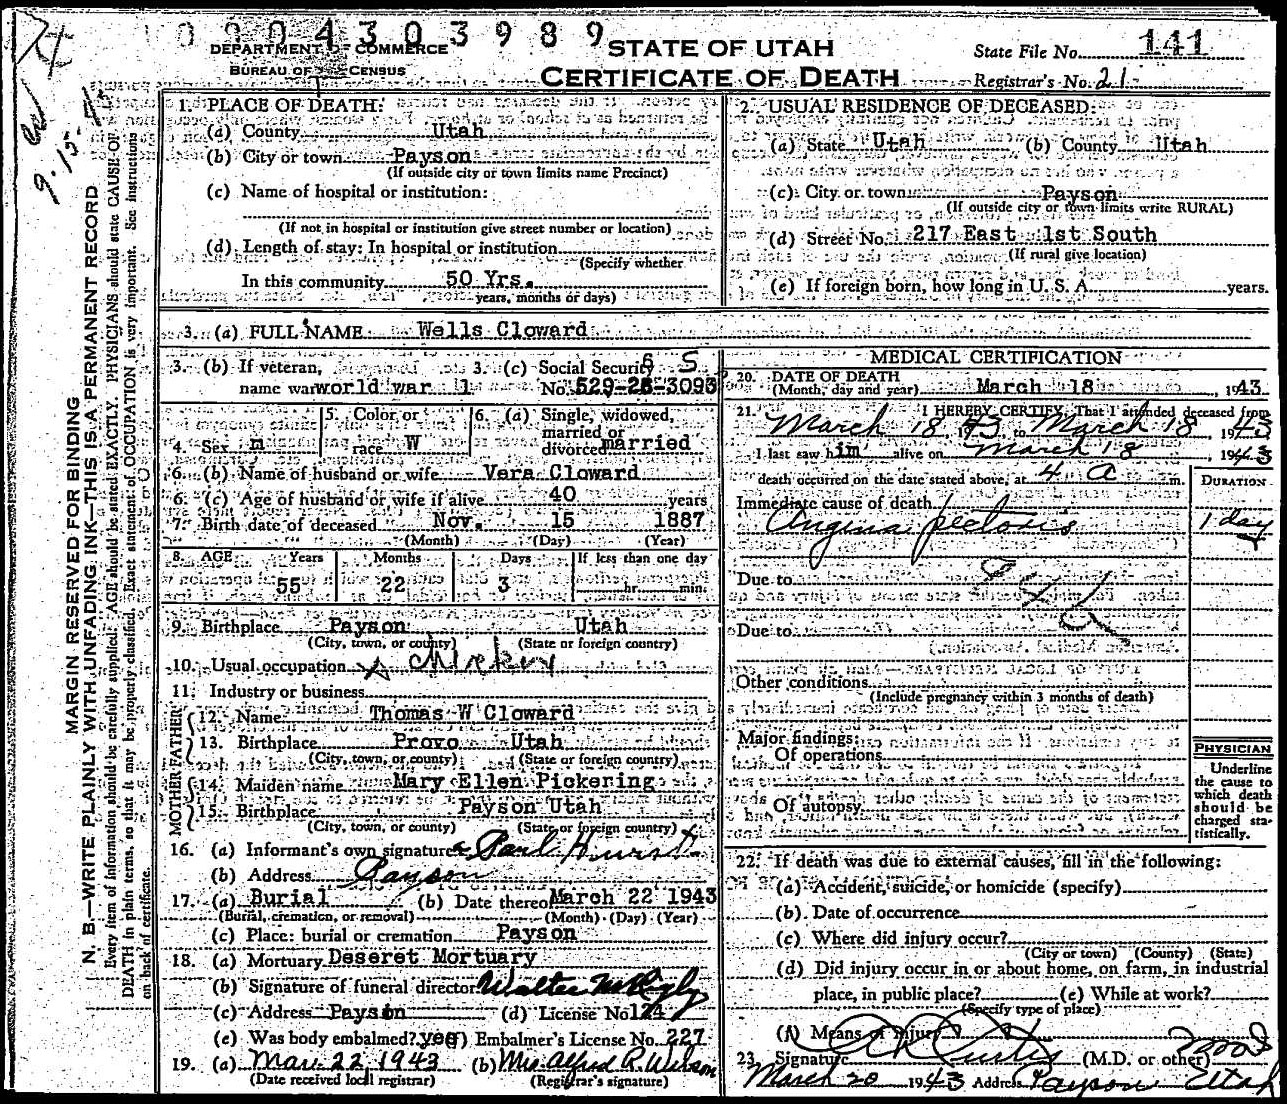 0 0 0 4 3 0 3 9 8 9
DEPARTMENT OF COMMERCE
BUREAU OF CENSUS
STATE OF UTAH
CERTIFICATE OF DEATH
State File No. 141
Registrar's No. 21
MARGIN RESERVED FOR BINDING
N. B.—WRITE PLAINLY WITH UNFADING INK—THIS IS A PERMANENT RECORD
Every item of information should be carefully supplied. AGE should be stated EXACTLY. PHYSICIANS should state CAUSE OF
DEATH in plain terms, so that it may be properly classified. Exact statement of OCCUPATION is very important. See instructions
on back of certificate.
1. PLACE OF DEATH:
(a) County Utah
(b) City or town Payson
(If outside city or town limits name Precinct)
(c) Name of hospital or institution:
(If not in hospital or institution give street number or location)
(d) Length of stay: In hospital or institution
(Specify whether
In this community 50 Yrs.
years, months or days)
2. USUAL RESIDENCE OF DECEASED
(a) State Utah (b) County Utah
(c) City or town Payson
(If outside city or town limits write RURAL)
(d) Street No. 217 East 1st South
(If rural give location)
(e) If foreign born, how long in U. S. A. years.
3. (a) FULL NAME Wells Cloward
3. (b) If veteran, 3. (c) Social Security
name war world war 1 No. 529-28-3093
6 S
4. Sex m 5. Color or race W 6. (a) Single, widowed, married or divorced married
6. (b) Name of husband or wife Vera Cloward
6. (c) Age of husband or wife if alive 40 years
7. Birth date of deceased Nov. 15 1887
(Month) (Day) (Year)
8. AGE Years Months Days If less than one day
55 22 3 hr. min.
9. Birthplace Payson Utah
(City, town, or county) (State or foreign country)
10. Usual occupation
11. Industry or business
FATHER
12. Name Thomas W Cloward
13. Birthplace Provo Utah
(City, town, or county) (State or foreign country)
MOTHER
14. Maiden name Mary Ellen Pickering
15. Birthplace Payson Utah
(City, town, or county) (State or foreign country)
16. (a) Informant's own signature Hurst
(b) Address Payson
17. (a) Burial (b) Date thereof March 22 1943
(Burial, cremation, or removal) (Month) (Day) (Year)
(c) Place: burial or cremation Payson
18. (a) Mortuary Deseret Mortuary
(b) Signature of funeral director Walter
(c) Address Payson (d) License No. 124
(e) Was body embalmed? yes (f) Embalmer's License No. 227
19. (a) Mar. 22, 1943 (b) Mrs. Alfred R. Wilson
(Date received local registrar) (Registrar's signature)
MEDICAL CERTIFICATION
20. DATE OF DEATH
(Month, day and year) March 18, 1943
21. I HEREBY CERTIFY, That I attended deceased from
March 18, 43 to March 18, 1943
I last saw him alive on March 18, 1943
death occurred on the date stated above, at 4 a m.
DURATION
Immediate cause of death
Angina pectoris 1 day
Due to
Due to
Other conditions
(Include pregnancy within 3 months of death)
Major findings:
Of operations
Of autopsy
PHYSICIAN
Underline
the cause to
which death
should be
charged sta-
tistically.
22. If death was due to external causes, fill in the following:
(a) Accident, suicide, or homicide (specify)
(b) Date of occurrence
(c) Where did injury occur?
(City or town) (County) (State)
(d) Did injury occur in or about home, on farm, in industrial
place, in public place? (e) While at work?
(Specify type of place)
(f) Means of Injury
23. Signature Curtis (M.D. or other) MD
March 20 1943 Address Payson Utah